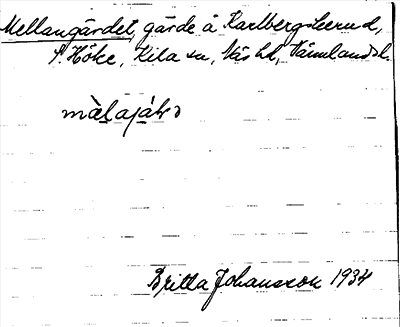 Mellangärdet, gärde å Karlbergskerud,
S. Höke, Kila sn, Näs hd, Värmlands l.
màlajáḷə
Britta Johansson 1934